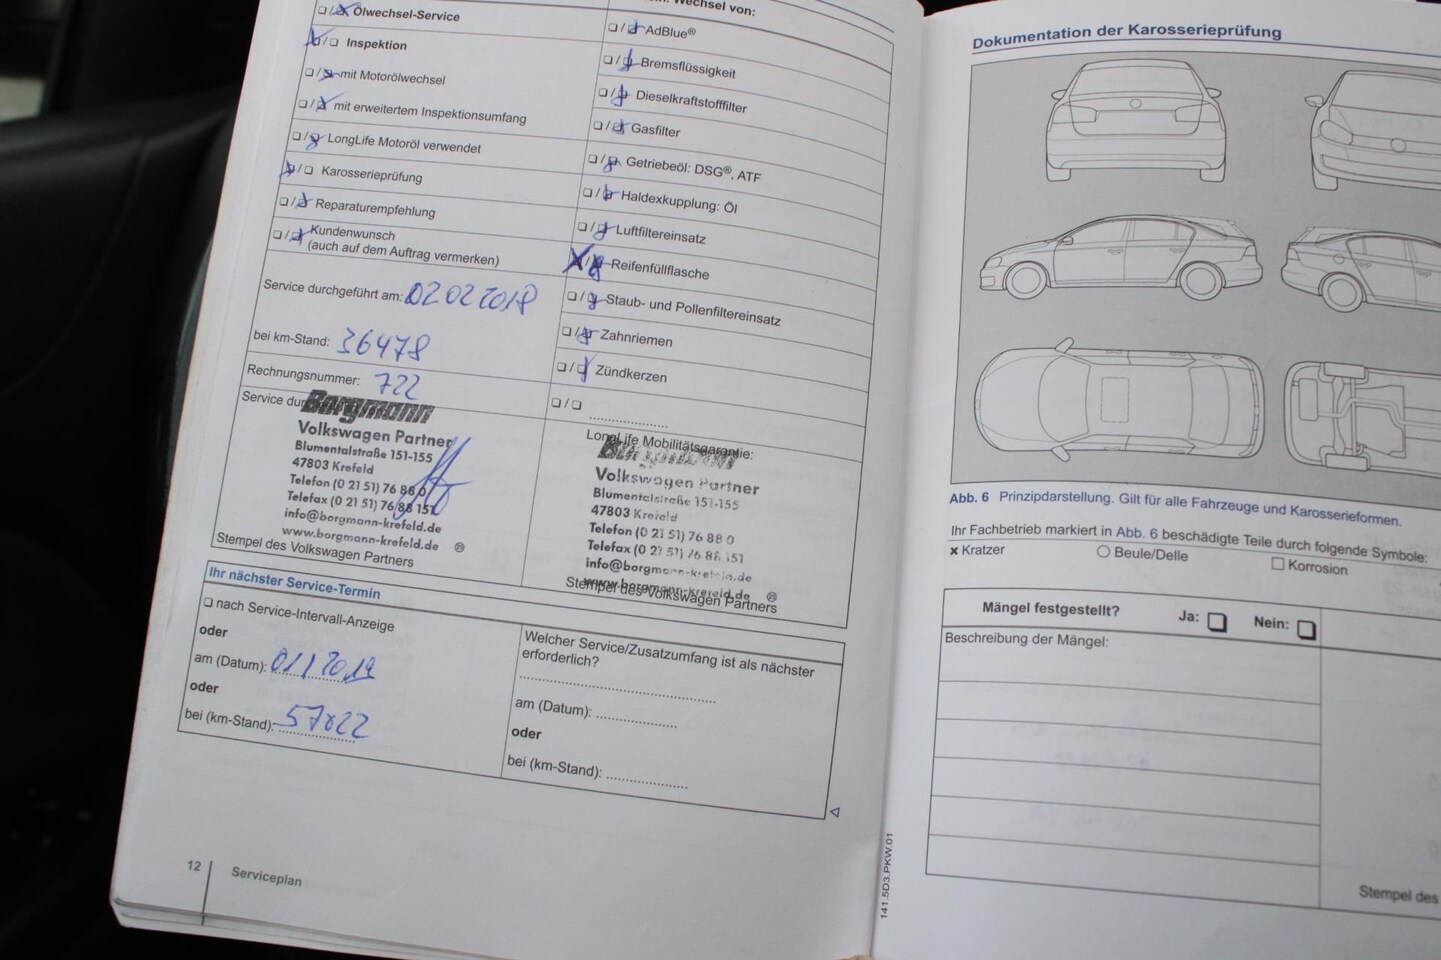 ❏ / ❏ Ölwechsel-Service
❏ / ❏ Inspektion
❏ / ❏ mit Motorölwechsel
❏ / ❏ mit erweitertem Inspektionsumfang
❏ / ❏ LongLife Motoröl verwendet
❏ / ❏ Karosserieprüfung
❏ / ❏ Reparaturempfehlung
❏ / ❏ Kundenwunsch
(auch auf dem Auftrag vermerken)
Service durchgeführt am: 02 02 2018
bei km-Stand: 36478
Rechnungsnummer: 722
Service dur
Borgmann
Volkswagen Partner
Blumentalstraße 151-155
47803 Krefeld
Telefon (0 21 51) 76 88 0
Telefax (0 21 51) 76 88 151
info@borgmann-krefeld.de
www.borgmann-krefeld.de
Stempel des Volkswagen Partners
Wechsel von:
❏ / ❏ AdBlue®
❏ / ❏ Bremsflüssigkeit
❏ / ❏ Dieselkraftstofffilter
❏ / ❏ Gasfilter
❏ / ❏ Getriebeöl: DSG®, ATF
❏ / ❏ Haldexkupplung: Öl
❏ / ❏ Luftfiltereinsatz
❏ / ❏ Reifenfüllflasche
❏ / ❏ Staub- und Pollenfiltereinsatz
❏ / ❏ Zahnriemen
❏ / ❏ Zündkerzen
❏ / ❏ ....................
LongLife Mobilitätsgarantie:
Volkswagen Partner
Blumentalstraße 151-155
47803 Krefeld
Telefon (0 21 51) 76 88 0
Telefax (0 21 51) 76 88 151
info@borgmann-krefeld.de
www.borgmann-krefeld.de
Stempel des Volkswagen Partners
Ihr nächster Service-Termin
❏ nach Service-Intervall-Anzeige
oder
am (Datum): 01/2019
oder
bei (km-Stand):
Welcher Service/Zusatzumfang ist als nächster
erforderlich?
....................
am (Datum): ....................
oder
bei (km-Stand): ....................
12
Serviceplan
Dokumentation der Karosserieprüfung
Abb. 6 Prinzipdarstellung. Gilt für alle Fahrzeuge und Karosserieformen.
Ihr Fachbetrieb markiert in Abb. 6 beschädigte Teile durch folgende Symbole:
× Kratzer ○ Beule/Delle □ Korrosion
Mängel festgestellt? Ja: ❏ Nein: ❏
Beschreibung der Mängel:
Stempel des
141.5D3.PKW.01